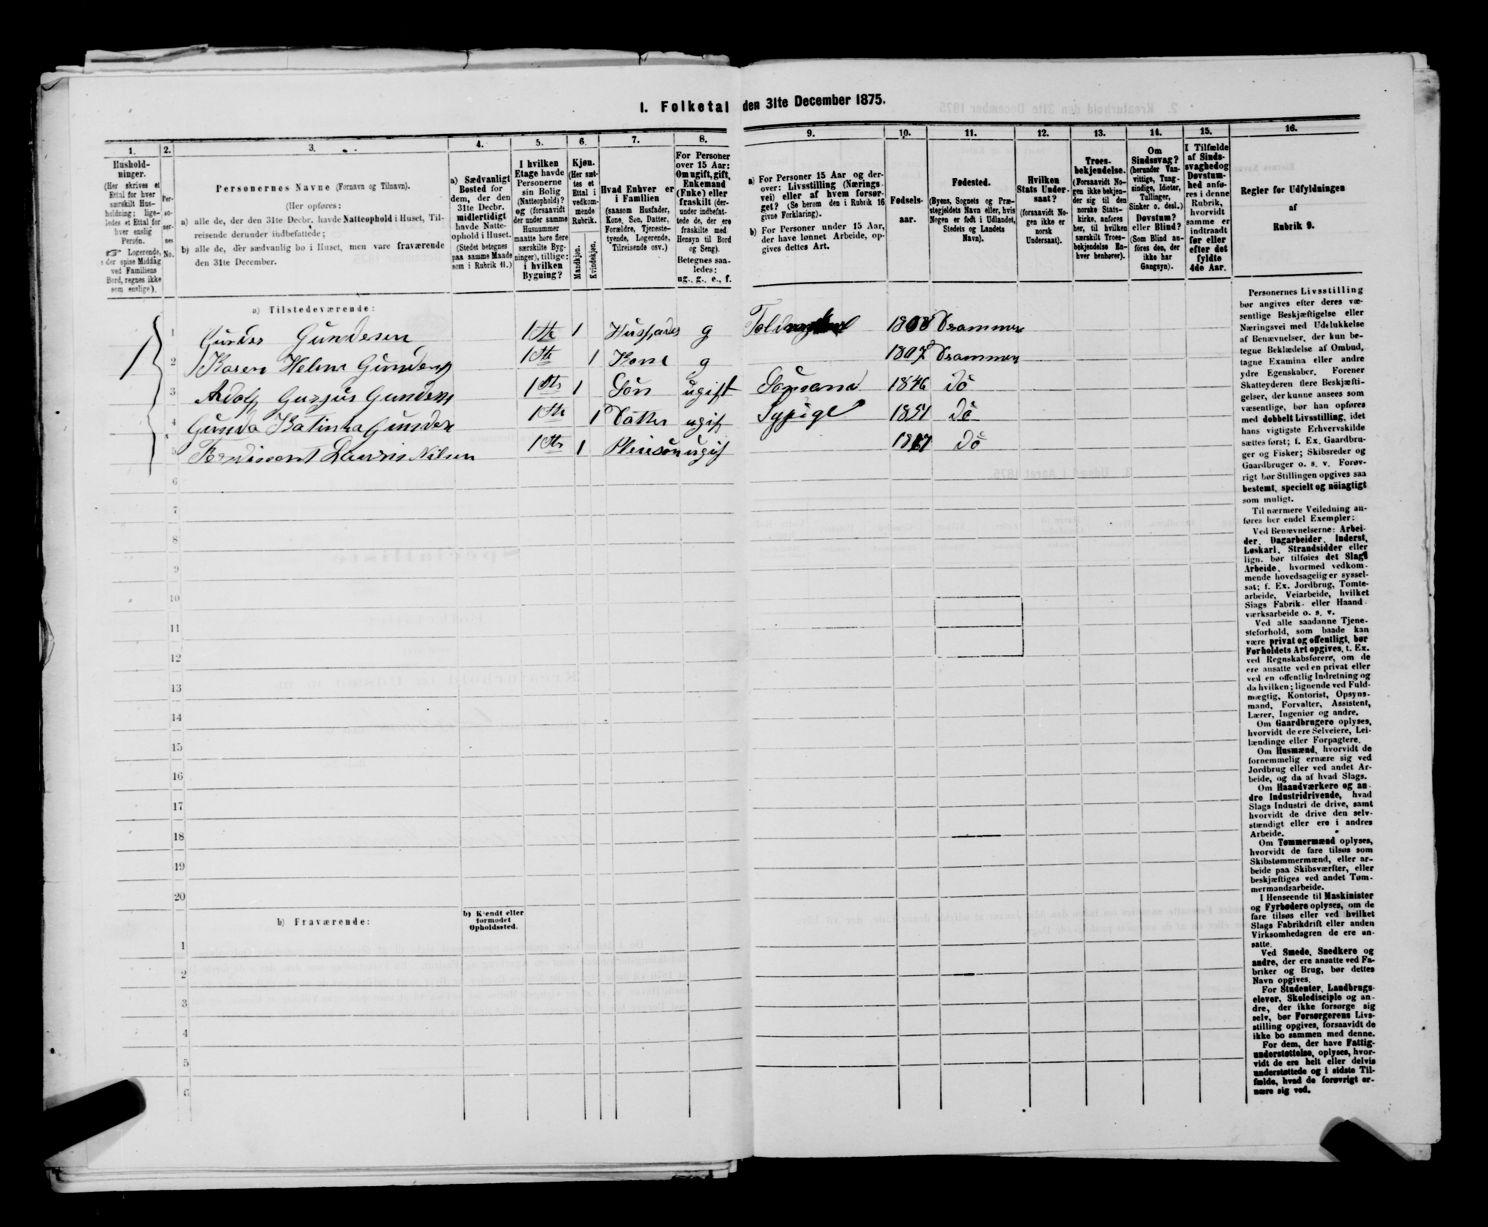 1. Folketal den 31te December 1875.
1. 2. 3. 4. 5. 6. 7. 8. 9. 10. 11. 12. 13. 14. 15. 16.
Hushold-
ninger.
(Her skrives et
Ettal for hver
særskilt Hus-
holdning; lige-
ledes et Ettal for
hver enslig
Person.
☞ Logerende,
der spise Middag
ved Familiens
Bord, regnes ikke
som enslige).
Per-
so-
ner-
nes
No.
Personernes Navne (Fornavn og Tilnavn).
(Her opføres:
a) alle de, der den 31te Decbr. havde Natteophold i Huset, Til-
reisende derunder indbefattede;
b) alle de, der sædvanlig bo i Huset, men vare fraværende
den 31te December.
a) Sædvanligt
Bosted for
dem, der den
31te Decbr.
midlertidigt
havde Natte-
ophold i Huset.
(Stedet betegnes
paa samme Maade
som i Rubrik 11.)
I hvilken
Etage havde
Personerne
sin Bolig
(Natteophold)?
og (forsaavidt
der under samme
Husnummer
maatte høre flere
særskilte Byg-
ninger), tillige:
i hvilken
Bygning?
Kjøn.
(Her sæt-
tes et
Ettal i
vedkom-
mende
Rubrik.
Mandkjøn.
Kvindekjøn.
Hvad Enhver er
i Familien
(saasom Husfader,
Kone, Søn, Datter,
Forældre, Tjeneste-
tyende, Logerende,
Tilreisende osv.)
For Personer
over 15 Aar:
Om ugift, gift,
Enkemand
(Enke) eller
fraskilt (der-
under indbefat-
tede de, der ere
fraskilte med
Hensyn til Bord
og Seng).
Betegnes saa-
ledes:
ug., g., e., f.
a) For Personer 15 Aar og der-
over: Livsstilling (Nærings-
vei) eller af hvem forsør-
get? (Se herom den i Rubrik 16
givne Forklaring).
b) For Personer under 15 Aar,
der have lønnet Arbeide, op-
gives dettes Art.
Fødsels-
aar.
Fødested.
(Byens, Sognets og Præ-
stegjeldets Navn eller, hvis
Nogen er født i Udlandet,
Stedets og Landets
Navn).
Hvilken
Stats Under-
saat?
(forsaavidt No-
gen ikke er
norsk
Undersaat).
Troes-
bekjendelse.
(Forsaavidt No-
gen ikke bekjen-
der sig til den
norske Stats-
kirke, anføres
her, til hvilken
særskilt Troes-
bekjendelse En-
hver henhører).
Om
Sindssvag?
(herunder Van-
vittige, Tung-
sindige, Idioter,
Tullinger,
Sinker o. desl.)
Døvstum?
eller Blind?
(Som Blind an-
føres den, der
ikke har
Gangsyn).
I Tilfælde
af Sinds-
svaghed og
Døvstum-
hed anfø-
res i denne
Rubrik,
hvorvidt
samme er
indtraadt
før eller
efter det
fyldte
4de Aar.
Regler for Udfyldningen
af
Rubrik 9.
a) Tilstedeværende:
1 1 Gunder Gundesen 1ste 1 Husfader g 1808 Drammen
2 Karen Helene Gundersen 1ste 1 Kone g 1807 Drammen
3 Adolf Gundersen 1ste 1 Søn ugift Sømand 1846 Do
4 Gunda Katinka Gundersen 1ste 1 Datter ugift Sypige 1851 Do
5 Nilsen 1ste 1 Pleiesøn ugift Do
6
7
8
9
10
11
12
13
14
15
16
17
18
19
20
b) Fraværende:
b) Kjendt eller
formodet
Opholdssted.
1
2
3
4
5
6
Personernes Livsstilling
bør angives efter deres væ-
sentlige Beskjæftigelse eller
Næringsvei med Udelukkelse
af Benævnelser, der kun be-
tegne Beklædelse af Ombud,
tagne Examina eller andre
ydre Egenskaber. Forener
Skatteyderen flere Beskjæfti-
gelser, der kunne ansees som
væsentlige, bør han opføres
med dobbelt Livsstilling, idet
hans vigtigste Erhvervskilde
sættes først; f. Ex. Gaardbru-
ger og Fisker; Skibsreder og
Gaardbruger o. s. v. Forøv-
rigt bør Stillingen opgives saa
bestemt, specielt og nöiagtigt
som muligt.
Til nærmere Veiledning an-
føres her endel Exempler:
Ved Benævnelserne: Arbei-
der, Dagarbeider, Inderst,
Løskarl, Strandsidder eller
lign. bør tilføies det Slags
Arbeide, hvormed vedkom-
mende hovedsagelig er syssel-
sat; f. Ex. Jordbrug, Tomte-
arbeide, Veiarbeide, hvilket
Slags Fabrik- eller Haand-
værksarbeide o. s. v.
Ved alle saadanne Tjene-
steforhold, som baade kan
være privat og offentligt, bør
Forholdets Art opgives, t. Ex.
ved Regnskabsførere, om de
ere ansatte ved en privat eller
ved en offentlig Indretning og
da hvilken; lignende ved Fuld-
mægtig, Kontorist, Opsyns-
mand, Forvalter, Assistent,
Lærer, Ingeniør og andre.
Om Gaardbrugere oplyses,
hvorvidt de ere Selveiere, Lei-
lændinge eller Forpagtere.
Om Husmænd, hvorvidt de
fornemmelig ernære sig ved
Jordbrug eller ved andet Ar-
beide, og da af hvad Slags.
Om Haandværkere og an-
dre Industridrivende, hvad
Slags Industri de drive, samt
hvorvidt de drive den selv-
stændigt eller ere i andres
Arbeide.
Om Tømmermænd oplyses,
hvorvidt de fare tilsøs som
Skibstømmermænd, eller ar-
beide paa Skibsværfter, eller
beskjæftiges ved andet Tøm-
mermandsarbeide.
I Henseende til Maskinister
og Fyrbødere oplyses, om de
fare tilsøs eller ved hvilket
Slags Fabrikdrift eller anden
Virksomhedsgren de ere an-
satte.
Ved Smede, Snedkere og
andre, der ere ansatte ved Fa-
briker og Brug, bør dettes
Navn opgives.
For Studenter, Landbrugs-
elever, Skoledisciple og an-
dre, der ikke forsørge sig
selv, bør Forsørgerens Livs-
stilling opgives, forsaavidt de
ikke bo sammen med denne.
For dem, der have Fattig-
understøttelse, oplyses, hvor-
vidt de ere helt eller delvis
understøttede og i sidste Til-
fælde, hvad de forøvrigt er-
nære sig ved.